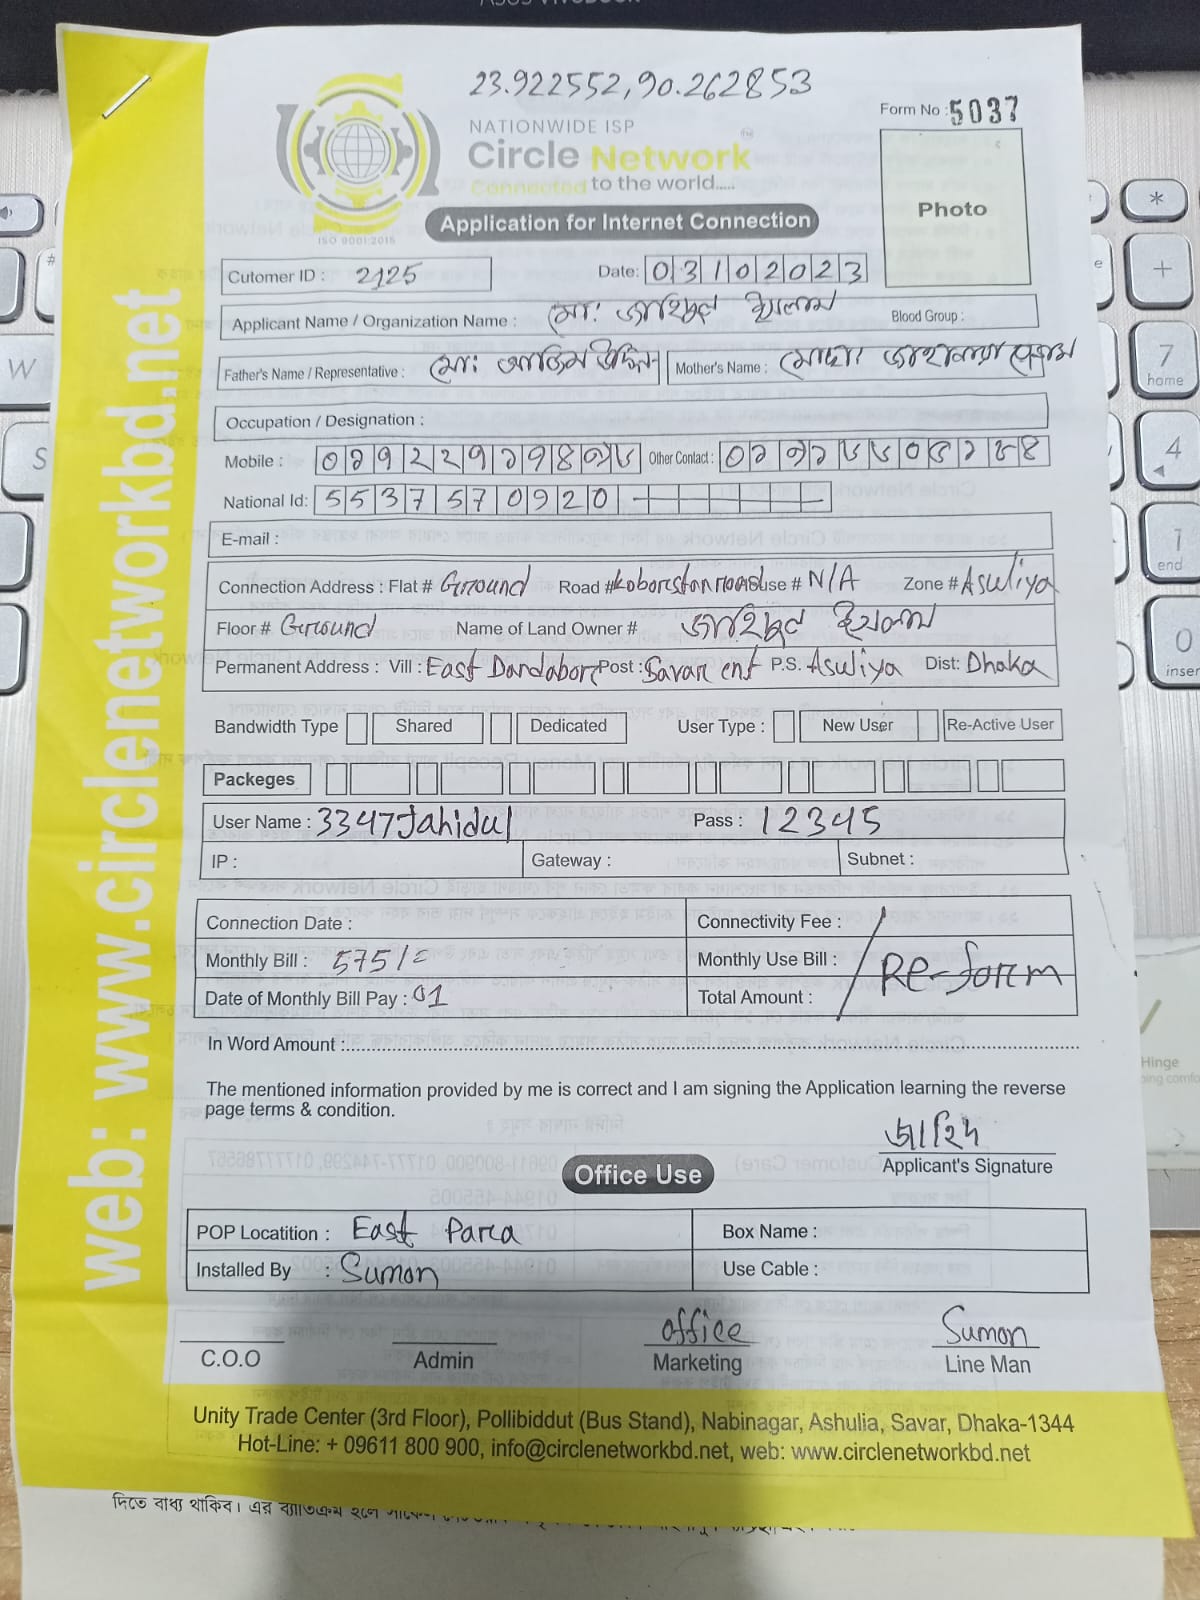 23.922552,90.262853
Form No : 5037
NATIONWIDE ISP
Circle Network
Connected to the world.....
ISO 9001:2015
Application for Internet Connection
Photo
Cutomer ID : 2125
Date: 03102023
Applicant Name / Organization Name : মো: জাহিদুল ইসলাম
Blood Group :
Father's Name / Representative : মো: আজিম উদ্দিন Mother's Name : মোছা:
Occupation / Designation :
Mobile :
Other Contact :
National Id: 5537570920
E-mail :
Connection Address : Flat # Ground Road # koborsthan road House # N/A Zone # Asuliya
Floor # Ground Name of Land Owner # জাহিদুল ইসলাম
Permanent Address : Vill : East Dandabor Post : Savar cnt P.S. Asuliya Dist: Dhaka
Bandwidth Type Shared Dedicated User Type : New User Re-Active User
Packeges
User Name : 3347Jahidul Pass : 12345
IP : Gateway : Subnet :
Connection Date : Connectivity Fee :
Monthly Bill : 575/= Monthly Use Bill : Re-form
Date of Monthly Bill Pay : 01 Total Amount :
In Word Amount :
The mentioned information provided by me is correct and I am signing the Application learning the reverse
page terms & condition.
জাহিদ
Applicant's Signature
Office Use
POP Locatition : East Para Box Name :
Installed By : Sumon Use Cable :
office Sumon
C.O.O Admin Marketing Line Man
Unity Trade Center (3rd Floor), Pollibiddut (Bus Stand), Nabinagar, Ashulia, Savar, Dhaka-1344
Hot-Line: + 09611 800 900, info@circlenetworkbd.net, web: www.circlenetworkbd.net
web: www.circlenetworkbd.net
দিতে বাধ্য থাকিব। এর ব্যাতিক্রম হলে